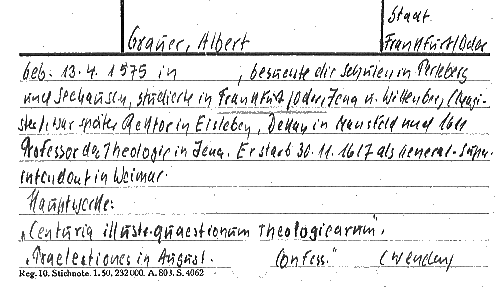 Stadt
Grauer, Albert
Frankfurt/Oder
geb. 13.4.1575 in , besuchte die Schulen in Perleberg
und Seehausen, studierte in Frankfurt/Oder, Jena u. Wittenberg, (Magi-
ster), war später Rektor in Eisleben, Dekan in Mansfeld und 1611
Professor der Theologie in Jena. Er starb 30.11.1617 als General-Supe-
intendent in Weimar.
Hauptwerke:
„Centuria illustr. quaestionum Theologicarum".
„Praelectiones in August. Confess." (wenden)
Reg. 10. Stichnote. 1. 50. 232 000. A. 803. S. 4062